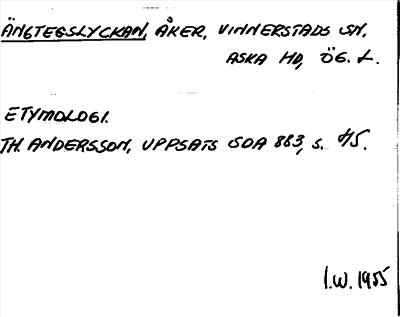 ÄNGTEGSLYCKAN, ÅKER, VINNERSTADS SN,
ASKA HD, ÖG. L.
ETYMOLOGI.
TH. ANDERSSON, UPPSATS SOA 883, s. 45.
I.W. 1955